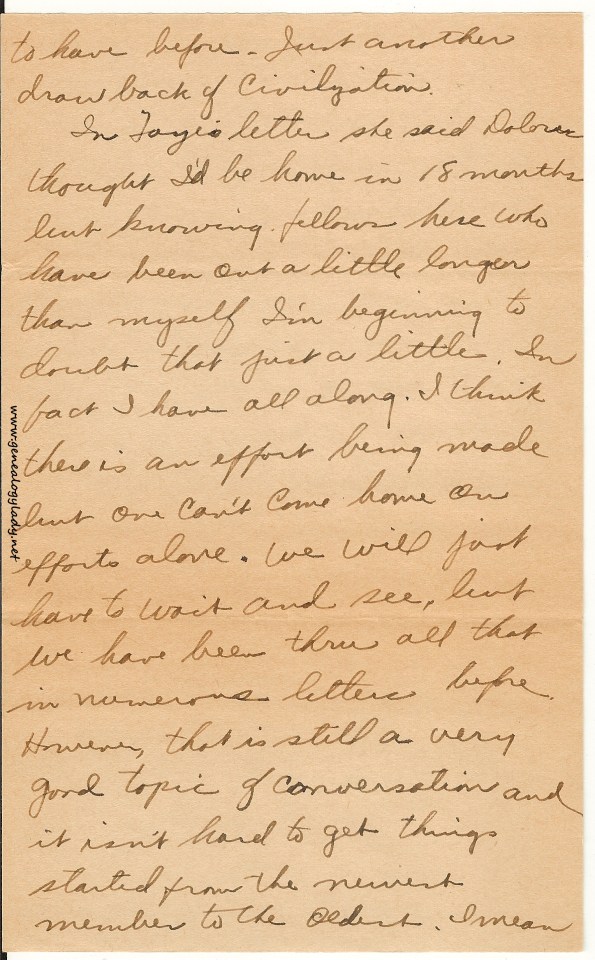 to have before - Just another
draw back of Civilization.
In Faye's letter she said Dolores
thought I'd be home in 18 months
but knowing fellows here who
have been out a little longer
than myself I'm beginning to
doubt that just a little. In
fact I have all along. I think
there is an effort being made
but one can't come home on
efforts alone. We will just
have to wait and see, but
we have been thru all that
in numerous letters before.
However, that is still a very
good topic of conversation and
it isn't hard to get things
started from the newest
member to the oldest. I mean
www.genealogylady.net